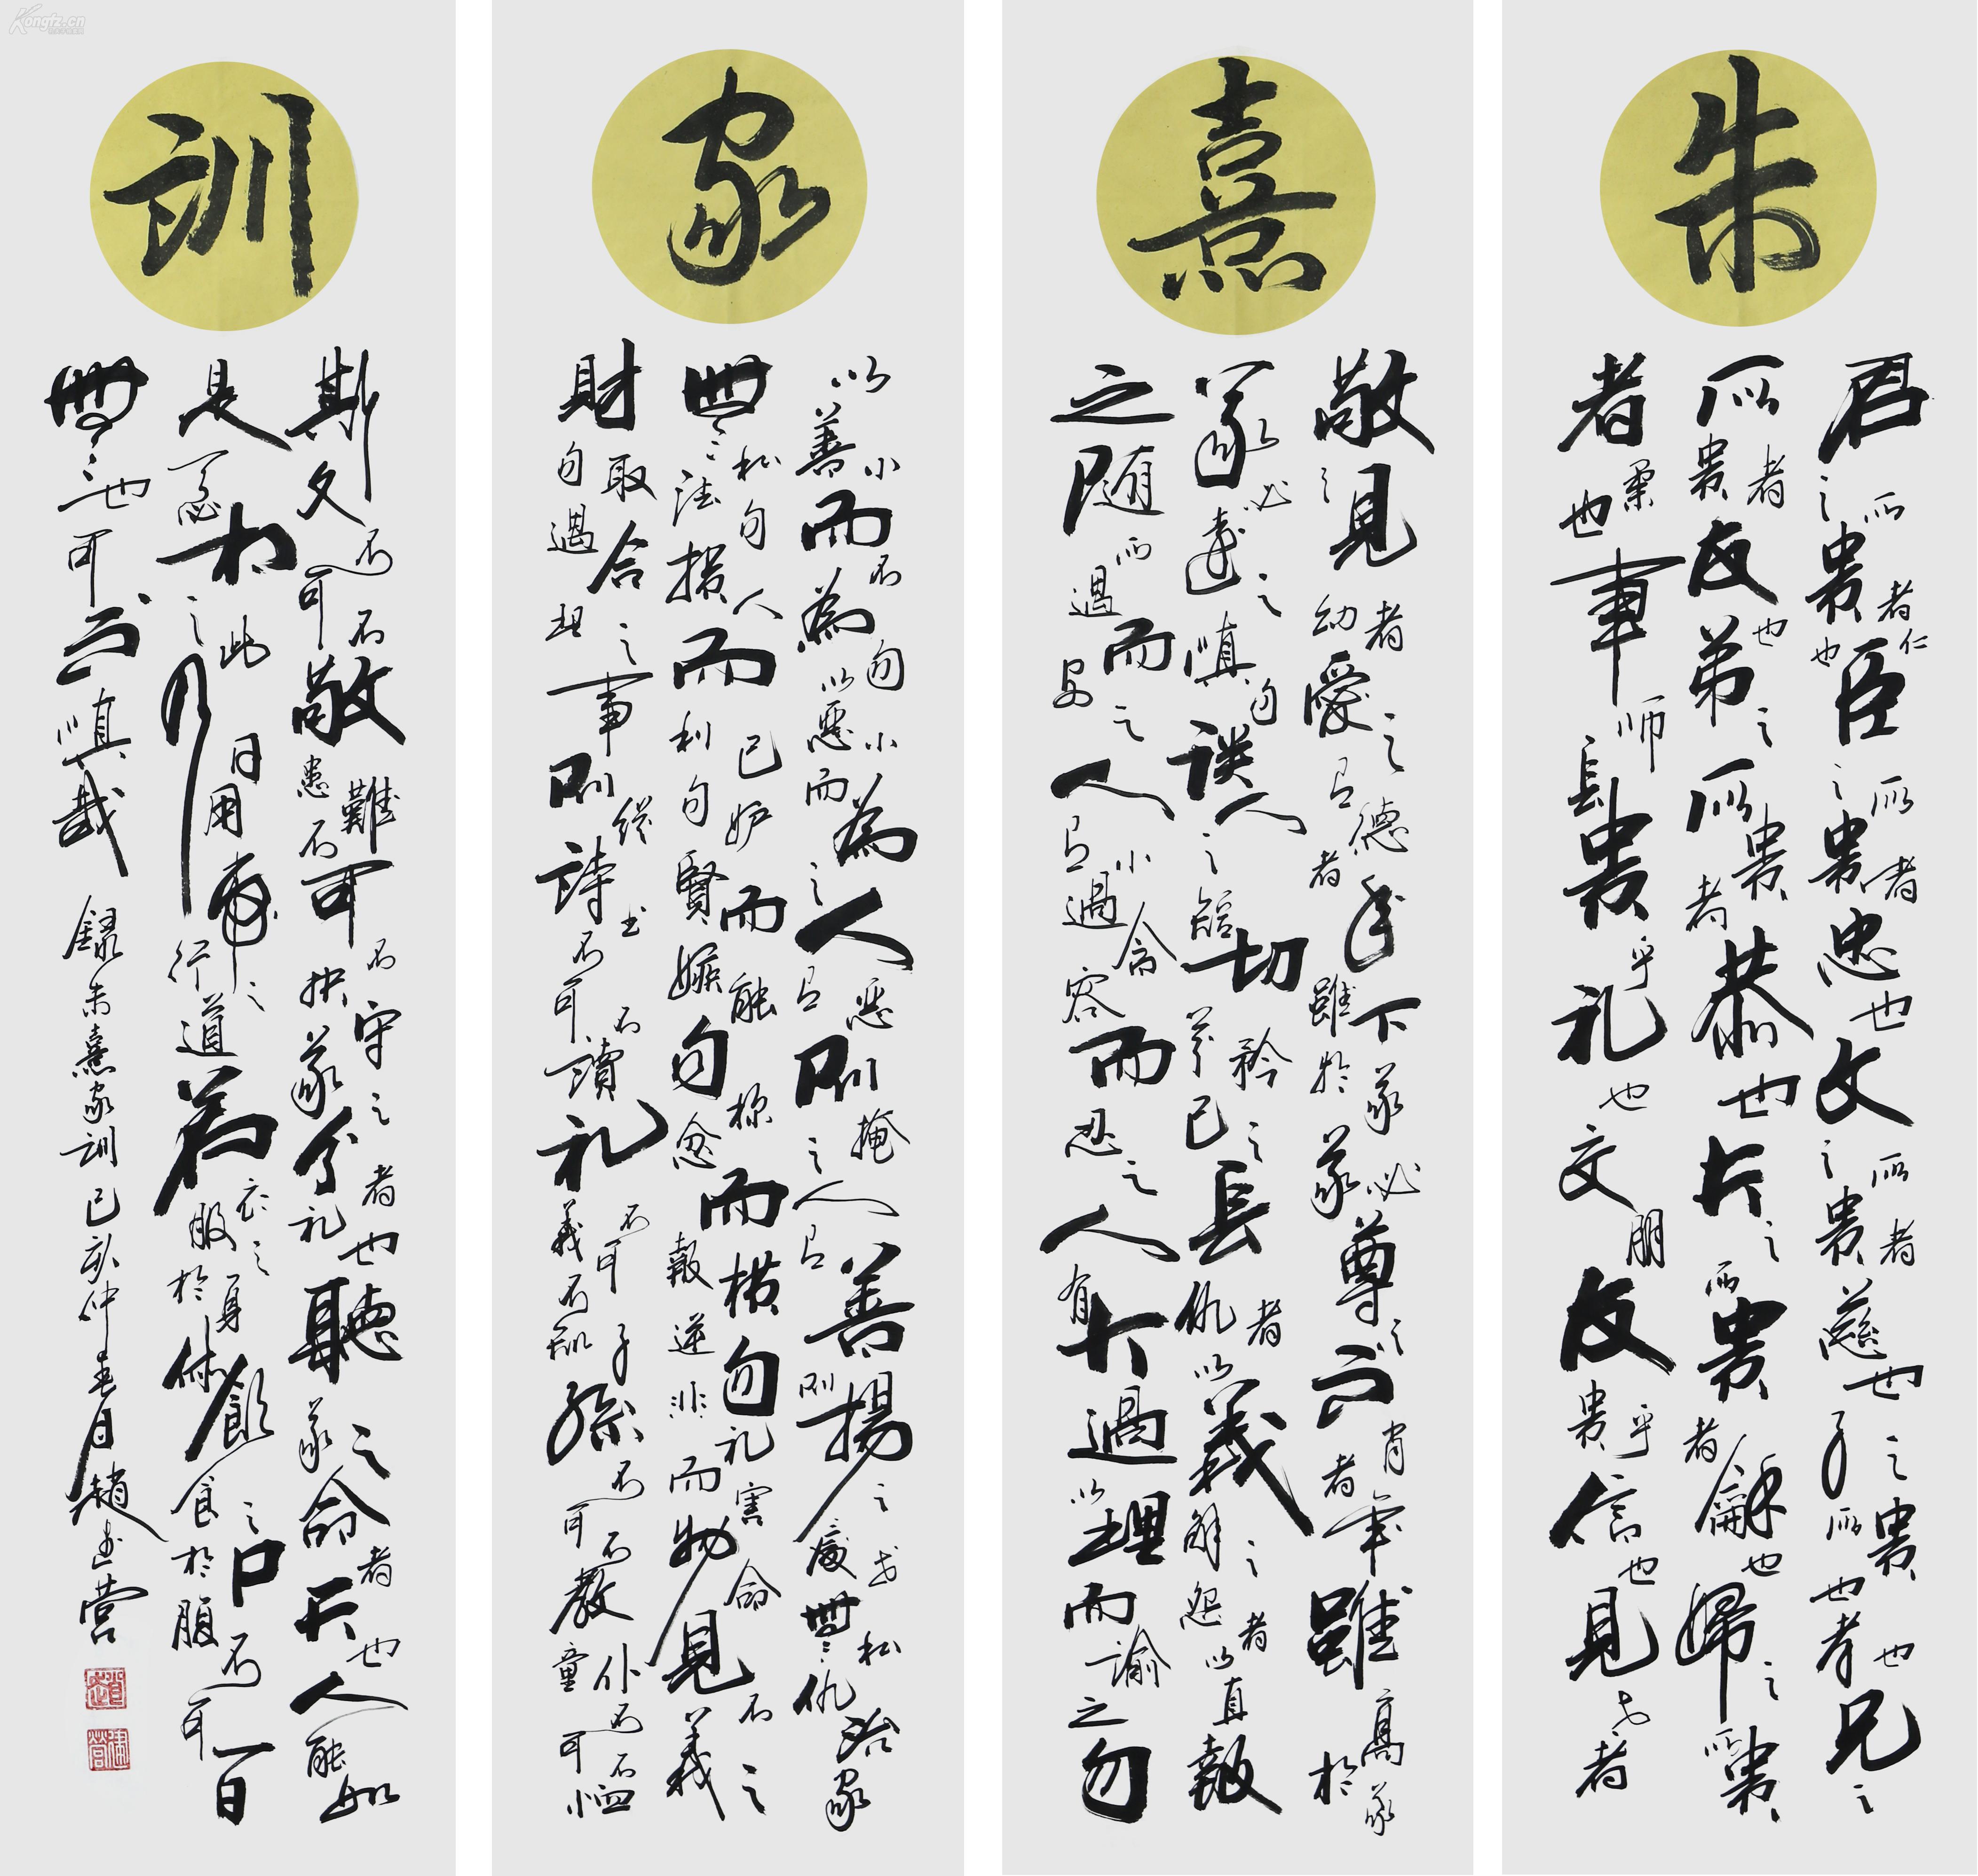 朱
君之所貴者仁也臣之所貴者忠也父之所貴者慈也子之所貴者孝也兄之
所貴者友也弟之所貴者恭也夫之所貴者龢也婦之所貴
者柔也事師長貴乎礼也交朋友貴乎信也見老者
熹
敬之見幼者愛之有德者年雖下於我我必尊之不肖者年雖高於我
我必遠之慎勿談人之短切莫矜己之長仇者以義解之怨者以直報
之隨所遇而安之人有小過含容而忍之人有大過以理而諭之勿
家
以善小而不為勿以惡小而為之人有惡則掩之人有善則揚之處世無私仇治家
無私法勿損人而利己勿妒賢而嫉能勿稱忿而報橫逆勿非礼而害物命見不義之
財勿取遇合理之事則從詩書不可不讀礼義不可不知子孫不可不教童仆不可不恤
訓
斯文不可不敬患難不可不扶守我之分者礼也聽我之命者天也人能如
是天必相之此乃日用常行之道若衣服之於身体飲食之於口腹不可一日
無也可不慎哉
錄朱熹家訓己亥仲春月趙建营
Kongfz.cn